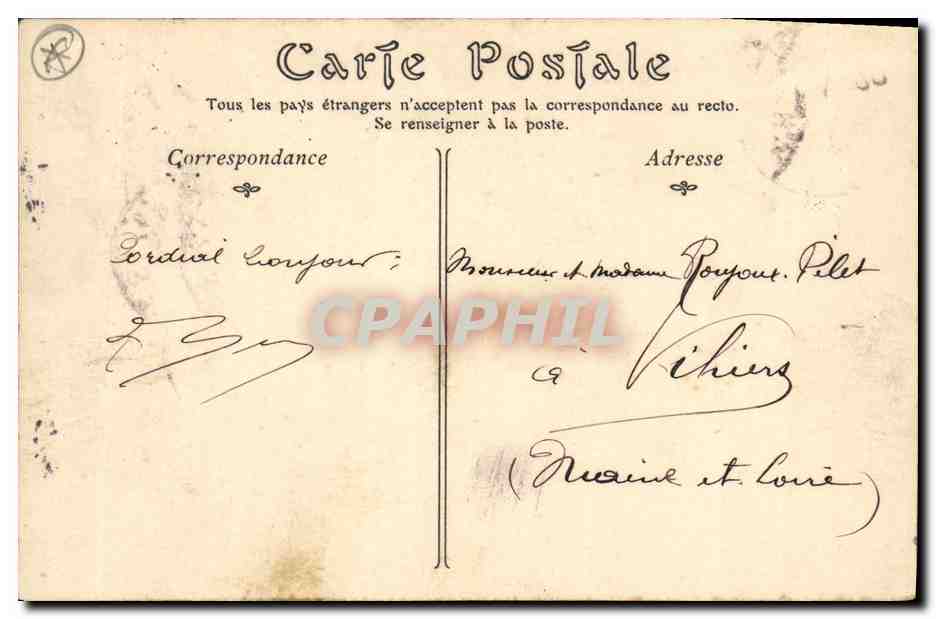 Carte Postale
Tous les pays étrangers n'acceptent pas la correspondance au recto.
Se renseigner à la poste.
Correspondance
Adresse
Cordial bonjour
Monsieur et Madame Roujoux-Pilet
à Vihiers
(Maine et Loire)
CPAPHIL